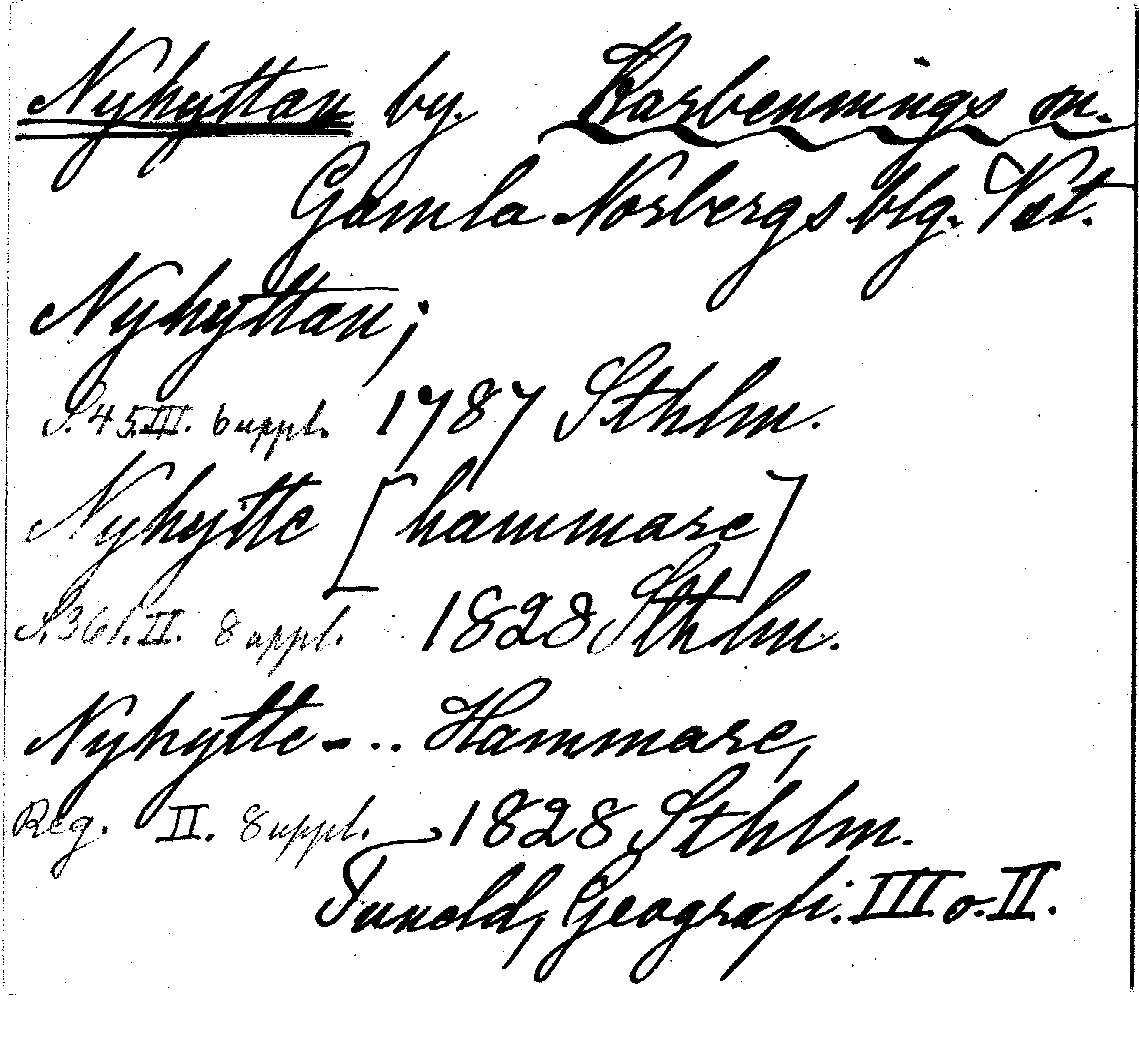 Nyhyttan by. Karbennings sn.
Gamla Norbergs blg. Vst.
Nyhyttan;
S. 45. III. 6 uppl. 1787 Sthlm.
Nyhytte [hammare]
S. 361. II. 8 uppl. 1828 Sthlm.
Nyhytte- .. Hammare,
Reg. II. 8 uppl. 1828 Sthlm.
Tuneld, Geografi. III o. II.